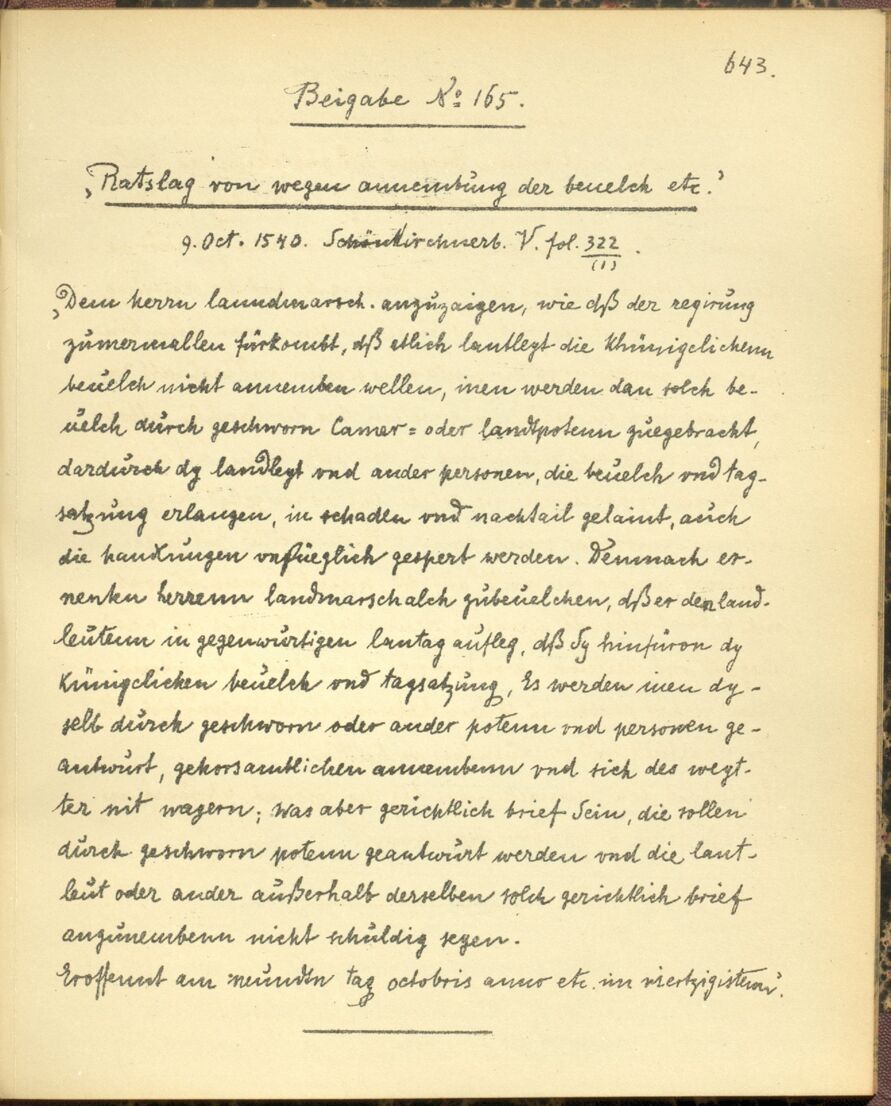 643.
Beigabe No 165.
„Ratslag von wegen annembung der beuelch etc.“
9. Oct. 1540. Schönkirchnerb. V. fol. 322
(1)
„Dem herrn lanndmarsch. anzuzaigen, wie dß der regirung
zumermallen fürkombt, dß etlich lantleyt die khünigclichenn
beuelch nicht annemben wellen, inen werden dan solch be-
uelch durch geschworn Camer= oder landtpotenn zuegebracht,
dardurch dy landleyt vnd ander personen, die beuelch vnd tag-
satzung erlangen, in schaden vnd nachtail gelaint, auch
die handlungen vnfüeglich gespert werden. Demnach er-
nenten herrenn landmarschalch zubeuelchen, dß er den land-
leutenn in gegenwürtigen lantag aufleg, dß Sy hinfüron dy
künigclichen beuelch vnd tagsatzung, Es werden inen dy-
selb durch geschworn oder ander potenn vnd personen ge-
antwurt, gehorsamblichen annembenn vnd sich des weyt-
ter nit wagern; was aber gerichtlich brief Sein, die sollen
durch geschworn potenn geantwurt werden vnd die lant-
leut oder ander außerhalb derselben solch gerichtlich brief
anzunembenn nicht schuldig seyen.
Eroffennt am neundtn tag octobris anno etc. im viertzigisten“.